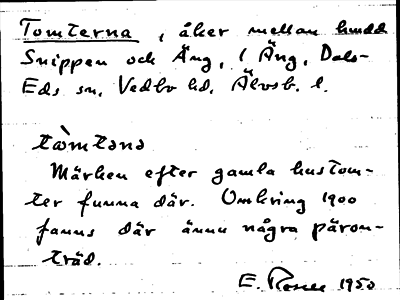 Tomterna, åker mellan
Snippen och Äng, i Äng, Dals-
Eds sn, Vedbo hd, Älvsb. l.
tòmtənə
Märken efter gamla hustom-
ter funna där. Omkring 1900
fanns där ännu några päron-
träd.
E. Rosell 1950